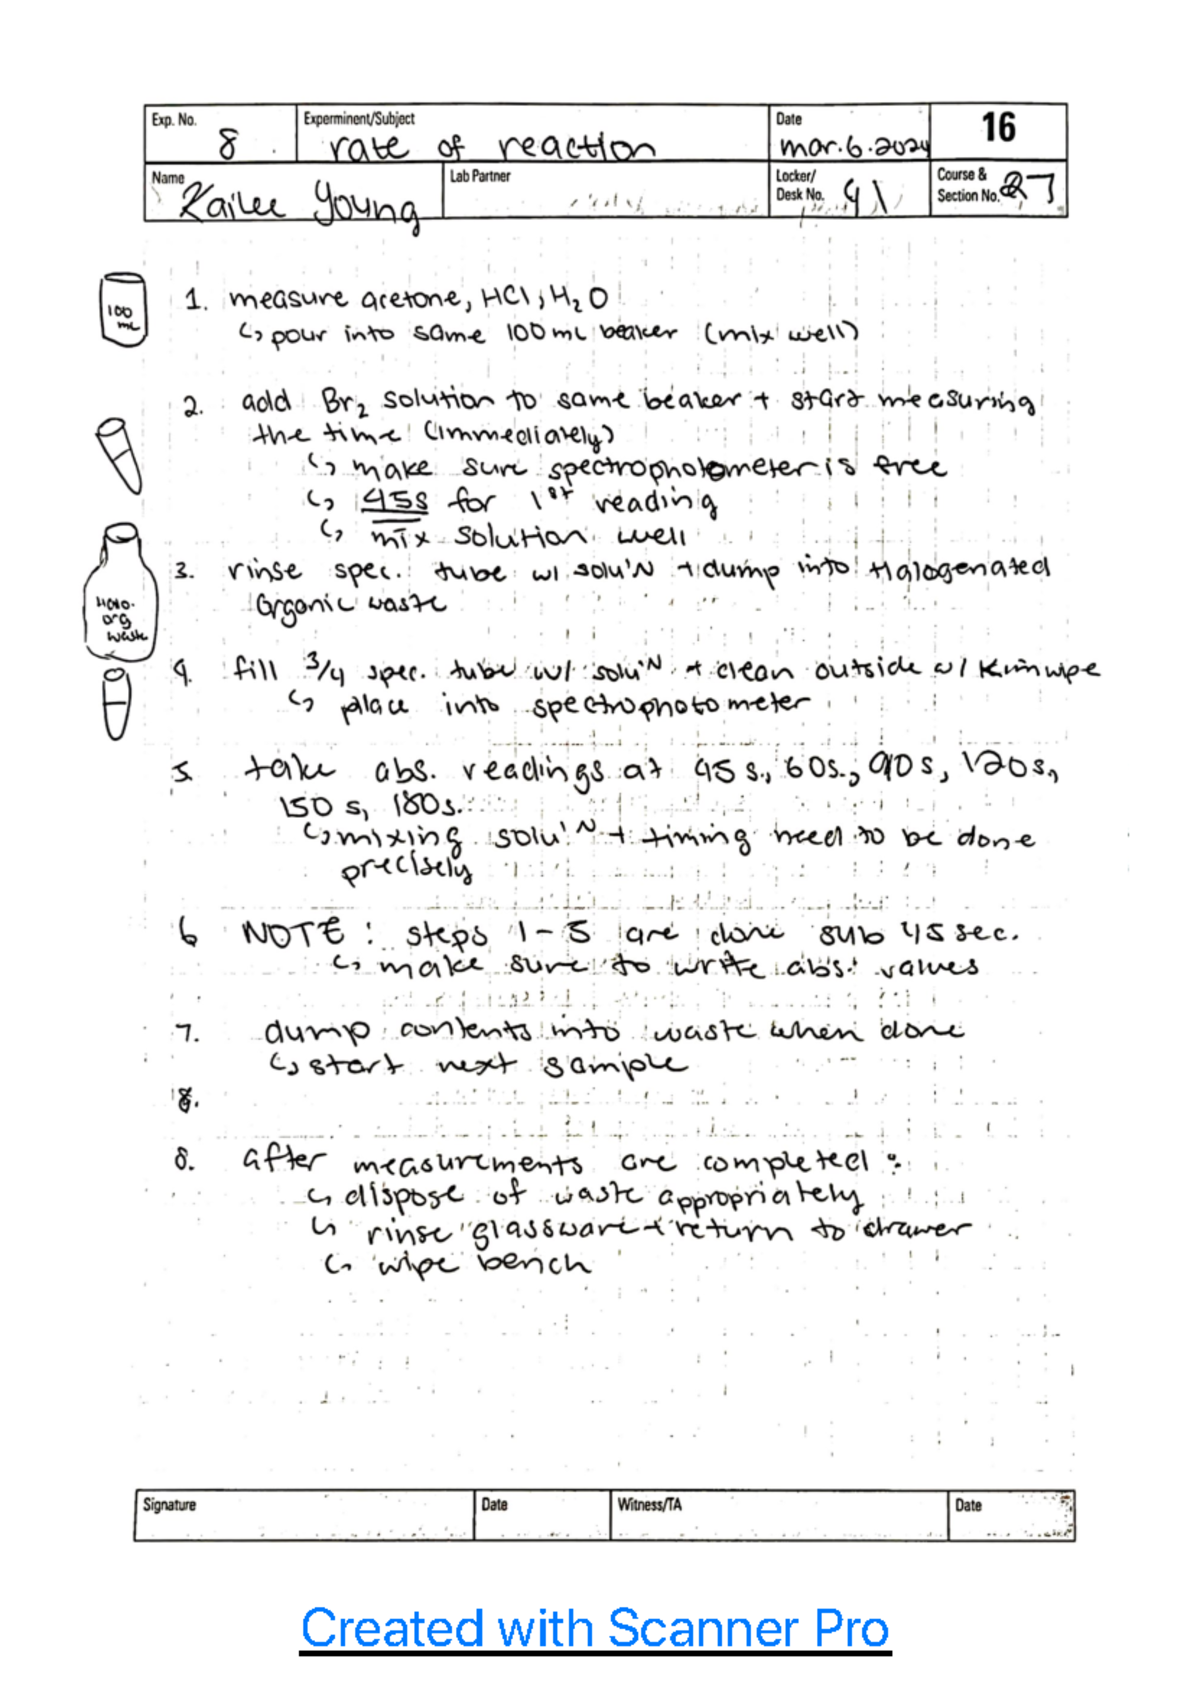 Exp. No. 8
Experminent/Subject rate of reaction
Date mar.6.2024
16
Name Kailee Young
Lab Partner
Locker/ Desk No. 41
Course & Section No. 27
100 mL
1. measure acetone, HCl, H₂O
↳ pour into same 100 mL beaker (mix well)
2. add Br₂ solution to same beaker + start measuring
the time (immediately)
↳ make sure spectrophotometer is free
↳ 45s for 1st reading
↳ mix solution well
3. rinse spec. tube w/ solu'N + dump into Halogenated
Organic waste
Halo. org waste
4. fill 3/4 spec. tube w/ solu'N + clean outside w/ Kimwipe
↳ place into spectrophotometer
5. take abs. readings at 45 s., 60s., 90 s, 120s.,
150 s, 180s.
↳ mixing solu'N + timing need to be done
precisely
6 NOTE: steps 1-5 are done sub 45 sec.
↳ make sure to write abs. values
7. dump contents into waste when done
↳ start next sample
8.
8. after measurements are completed:
↳ dispose of waste appropriately
↳ rinse glassware + return to drawer
↳ wipe bench
Signature
Date
Witness/TA
Date
Created with Scanner Pro